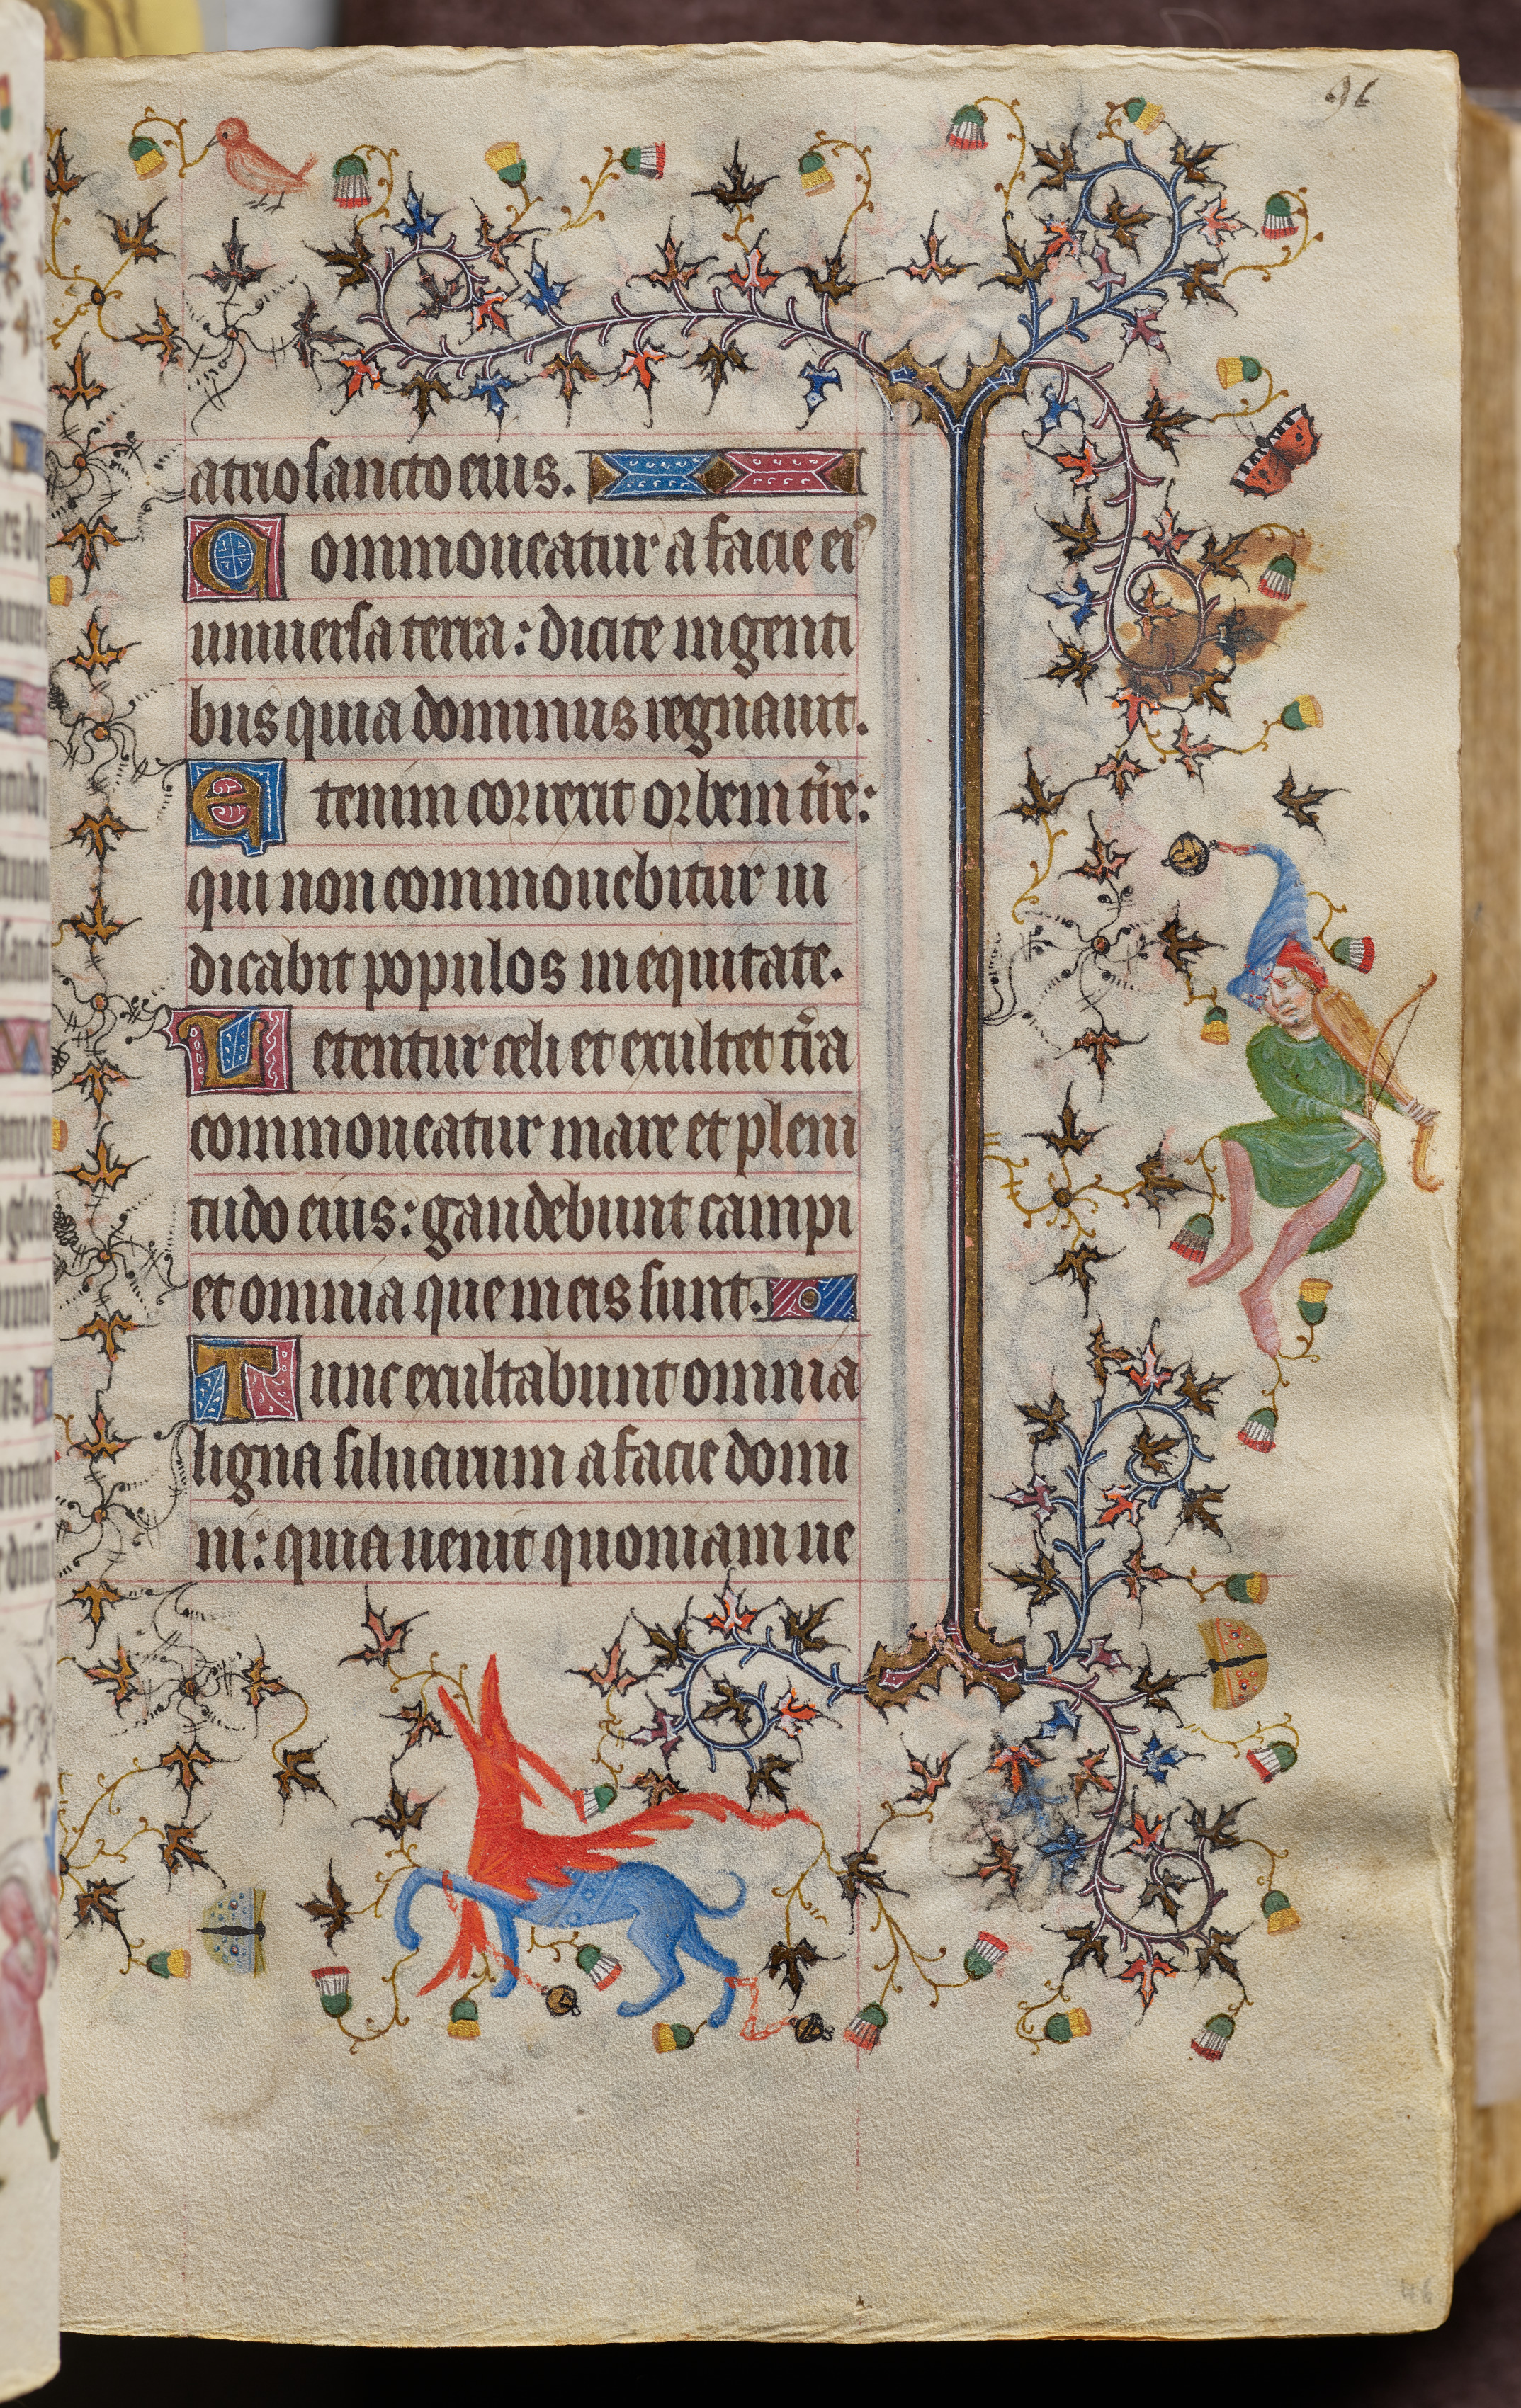 96
atrio sancto eius.
Commoueatur a facie ei9
uniuersa terra: dicite in genti
bus quia dominus regnauit.
Etenim correxit orbem tr̄e:
qui non commouebitur iu
dicabit populos in equitate.
Letentur celi et exultet tr̄a
commoueatur mare et pleni
tudo eius: gaudebunt campi
et omnia que in eis sunt.
Tunc exultabunt omnia
ligna siluarum a facie domi
ni: quia uenit quoniam ue